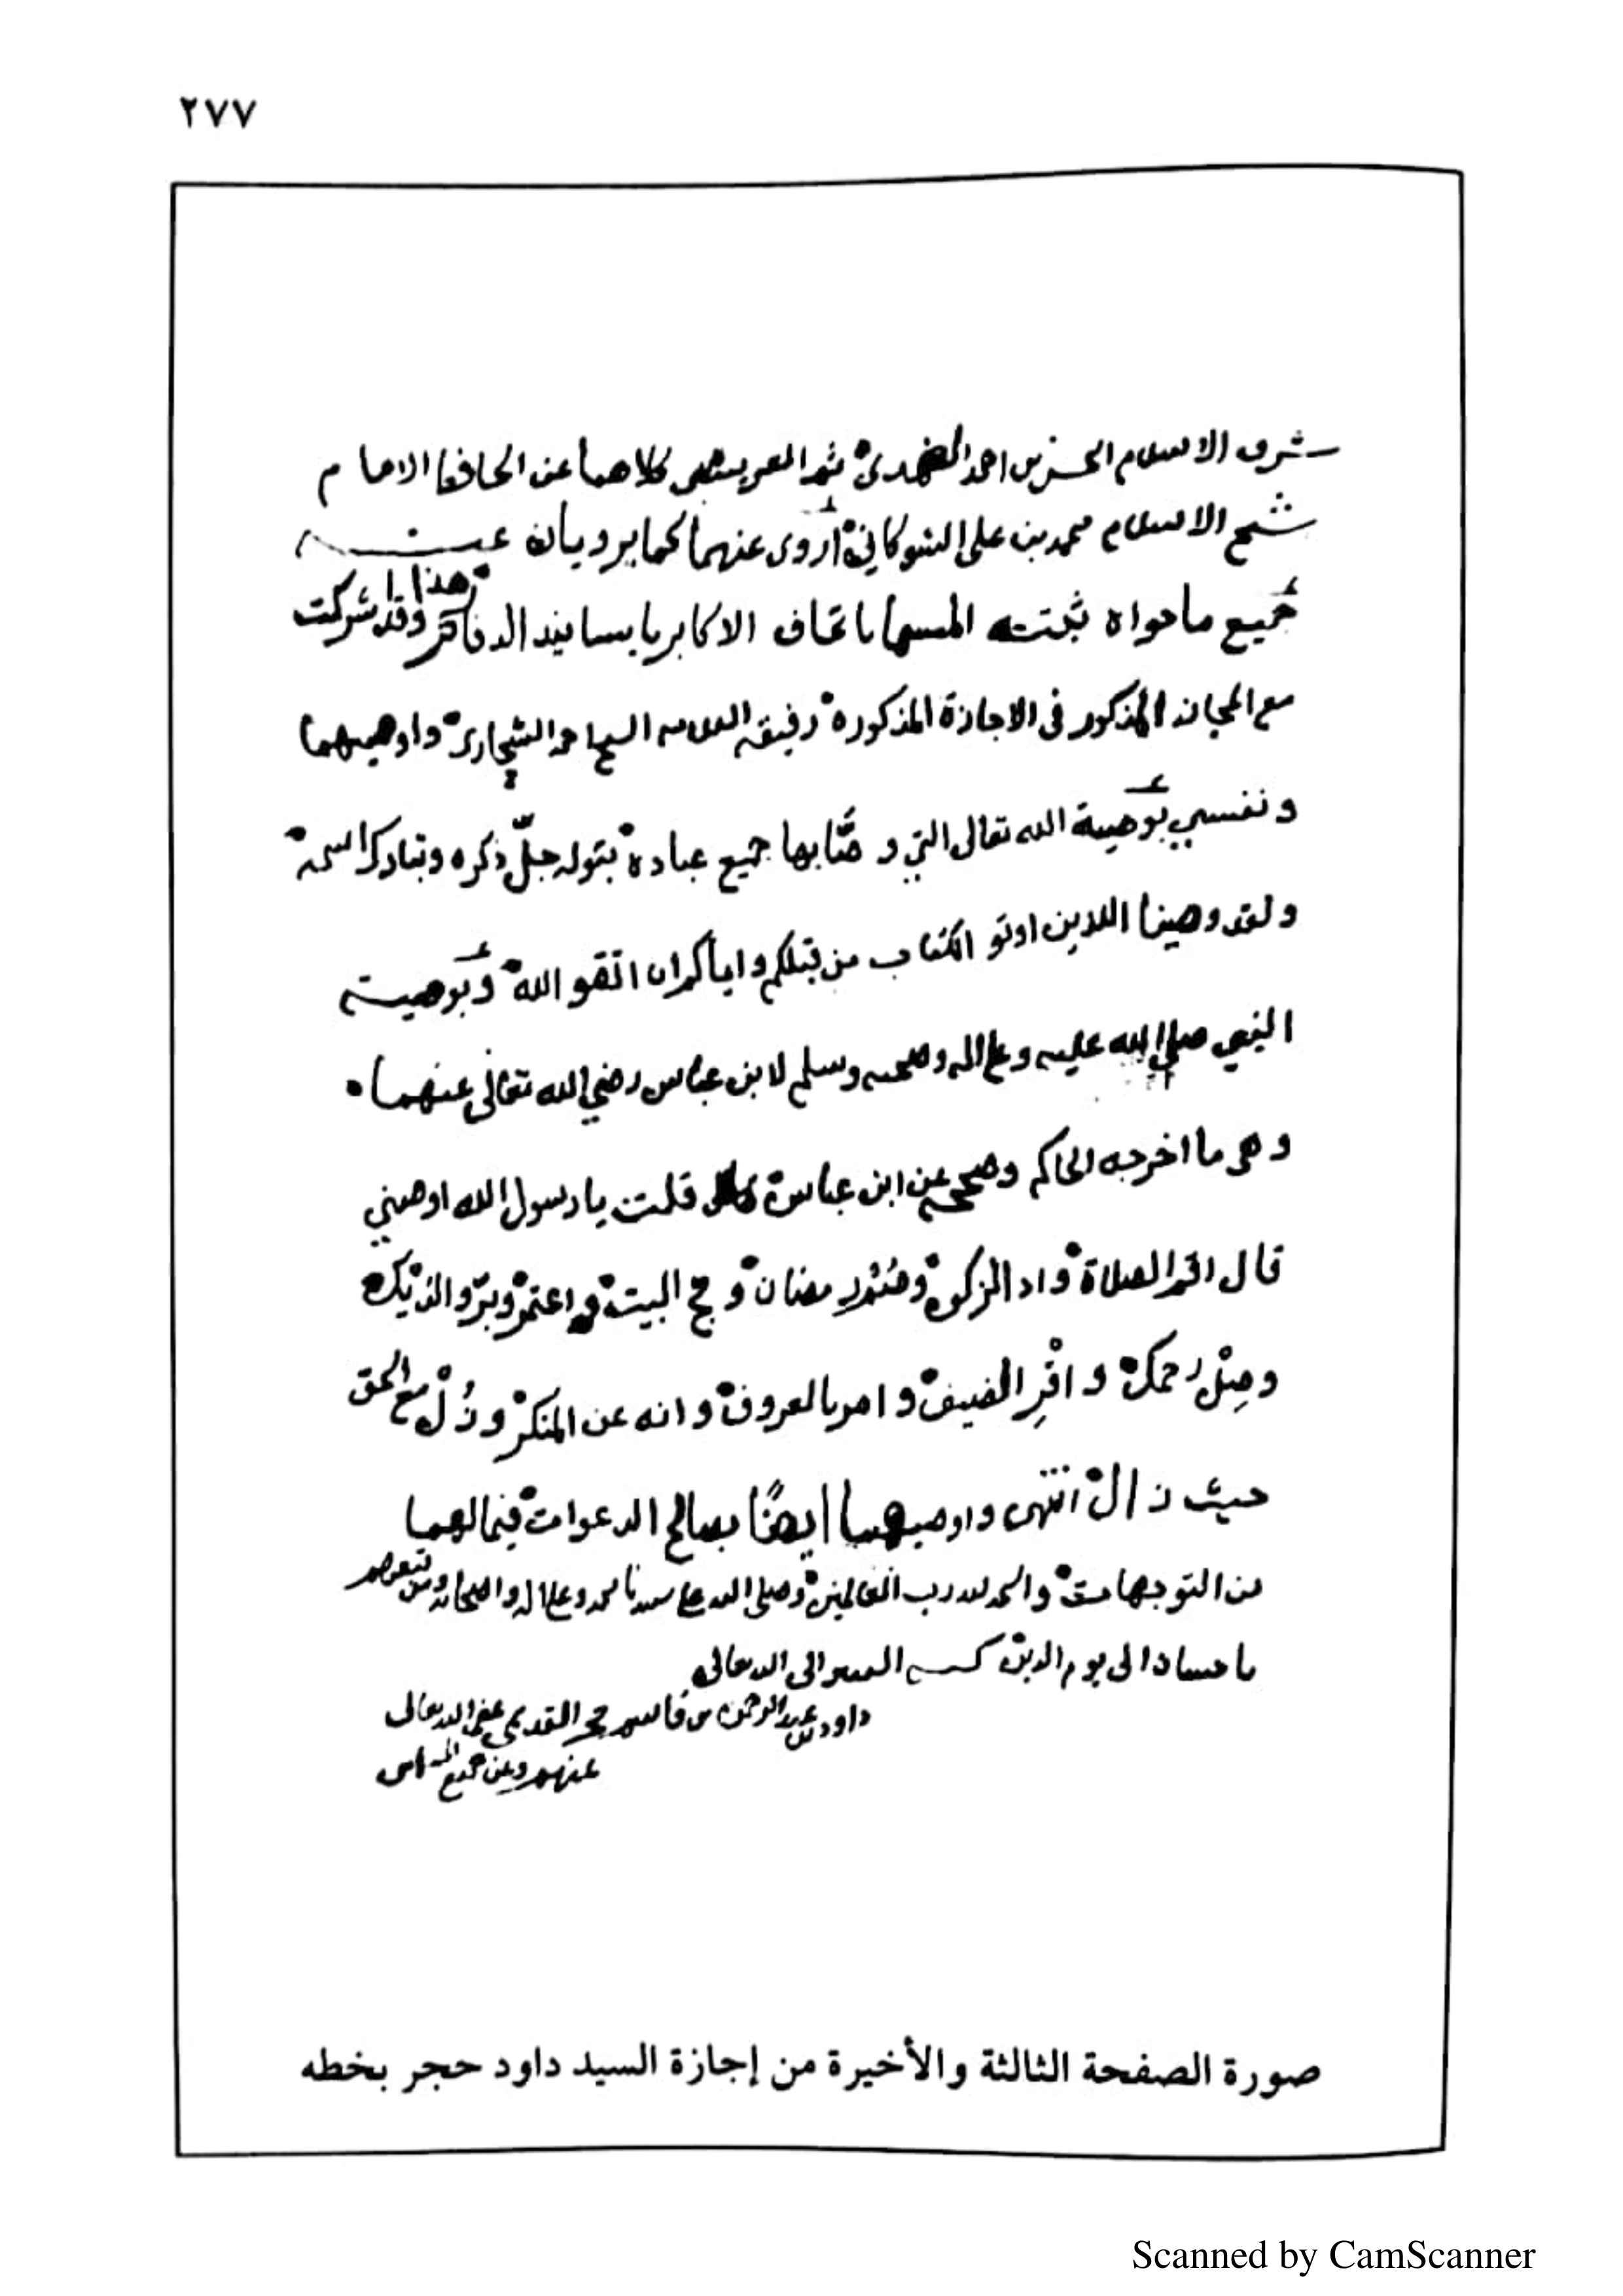 ٢٧٧
شرف الاسلام الحسن بن احمد الضمدي كلاهما عن الحافظ الامام
شيخ الاسلام محمد بن علي الشوكاني اروي عنهما كما يرويان عنه
جميع ما حواه ثبته المسما باتحاف الاكابر باسانيد الدفاتر هذا وقد شركت
مع المجاز المذكور في الاجازة المذكوره رفيقه العلامه واوصيهما
ونفسي بوصية الله تعالى التي وصّا بها جميع عباده بقوله جلّ ذكره وتبارك اسمه
ولقد وصينا الذين اوتو الكتاب من قبلكم واياكم ان اتقو الله وبوصية
النبي صلى الله عليه وعلى اله وصحبه وسلم لابن عباس رضي الله تعالى عنهما
وهي ما اخرجه الحاكم وصححه عن ابن عباس قال قلت يا رسول الله اوصني
قال اقم الصلاة واد الزكوه وصُمْ رمضان وحج البيت واعتمرْ وبرّ والديك
وصِلْ رحمك واقْرِ الضيف وامر بالمعروف وانه عن المنكر وزُلْ مع الحق
حيث زال انتهى واوصيهما ايضًا بصالح الدعوات فيما لهما
من التوجهات والحمد لله رب العالمين وصلى الله على سيدنا محمد وعلى اله واصحابه ومن تبعهم
باحسان الى يوم الدين كتبه الفقير الى الله تعالى
داود بن عبد الرحمن بن قاسم حجر القديمي عفى الله تعالى
عنهم وعن جميع
صورة الصفحة الثالثة والأخيرة من إجازة السيد داود حجر بخطه
Scanned by CamScanner